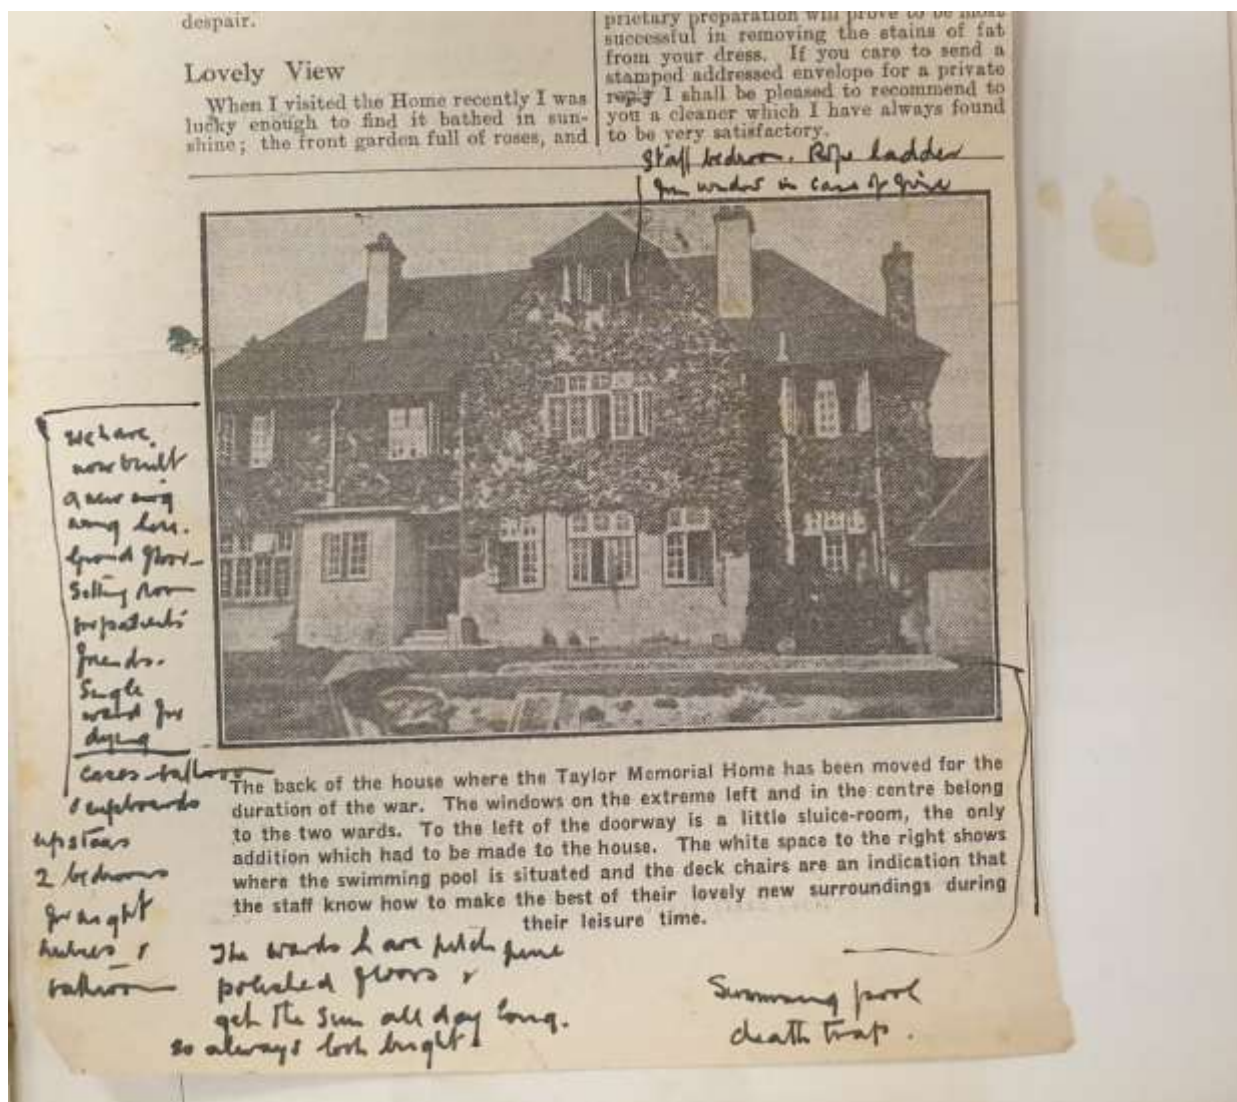 despair.
Lovely View
When I visited the Home recently I was
lucky enough to find it bathed in sun-
shine; the front garden full of roses, and
prietary preparation will prove to be most
successful in removing the stains of fat
from your dress. If you care to send a
stamped addressed envelope for a private
reply I shall be pleased to recommend to
you a cleaner which I have always found
to be very satisfactory.
Staff bedroom. Rope ladder
from window in case of fire
we have
now built
a new wing
here.
Ground floor -
Sitting Room
for patients'
friends.
Single
ward for
dying
cases - bathroom
& cupboards
upstairs
2 bedrooms
for night
nurses &
bathroom
The back of the house where the Taylor Memorial Home has been moved for the
duration of the war. The windows on the extreme left and in the centre belong
to the two wards. To the left of the doorway is a little sluice-room, the only
addition which had to be made to the house. The white space to the right shows
where the swimming pool is situated and the deck chairs are an indication that
the staff know how to make the best of their lovely new surroundings during
their leisure time.
The wards have pitch pine
polished floors &
get the sun all day long.
so always look bright.
Swimming pool
death trap.